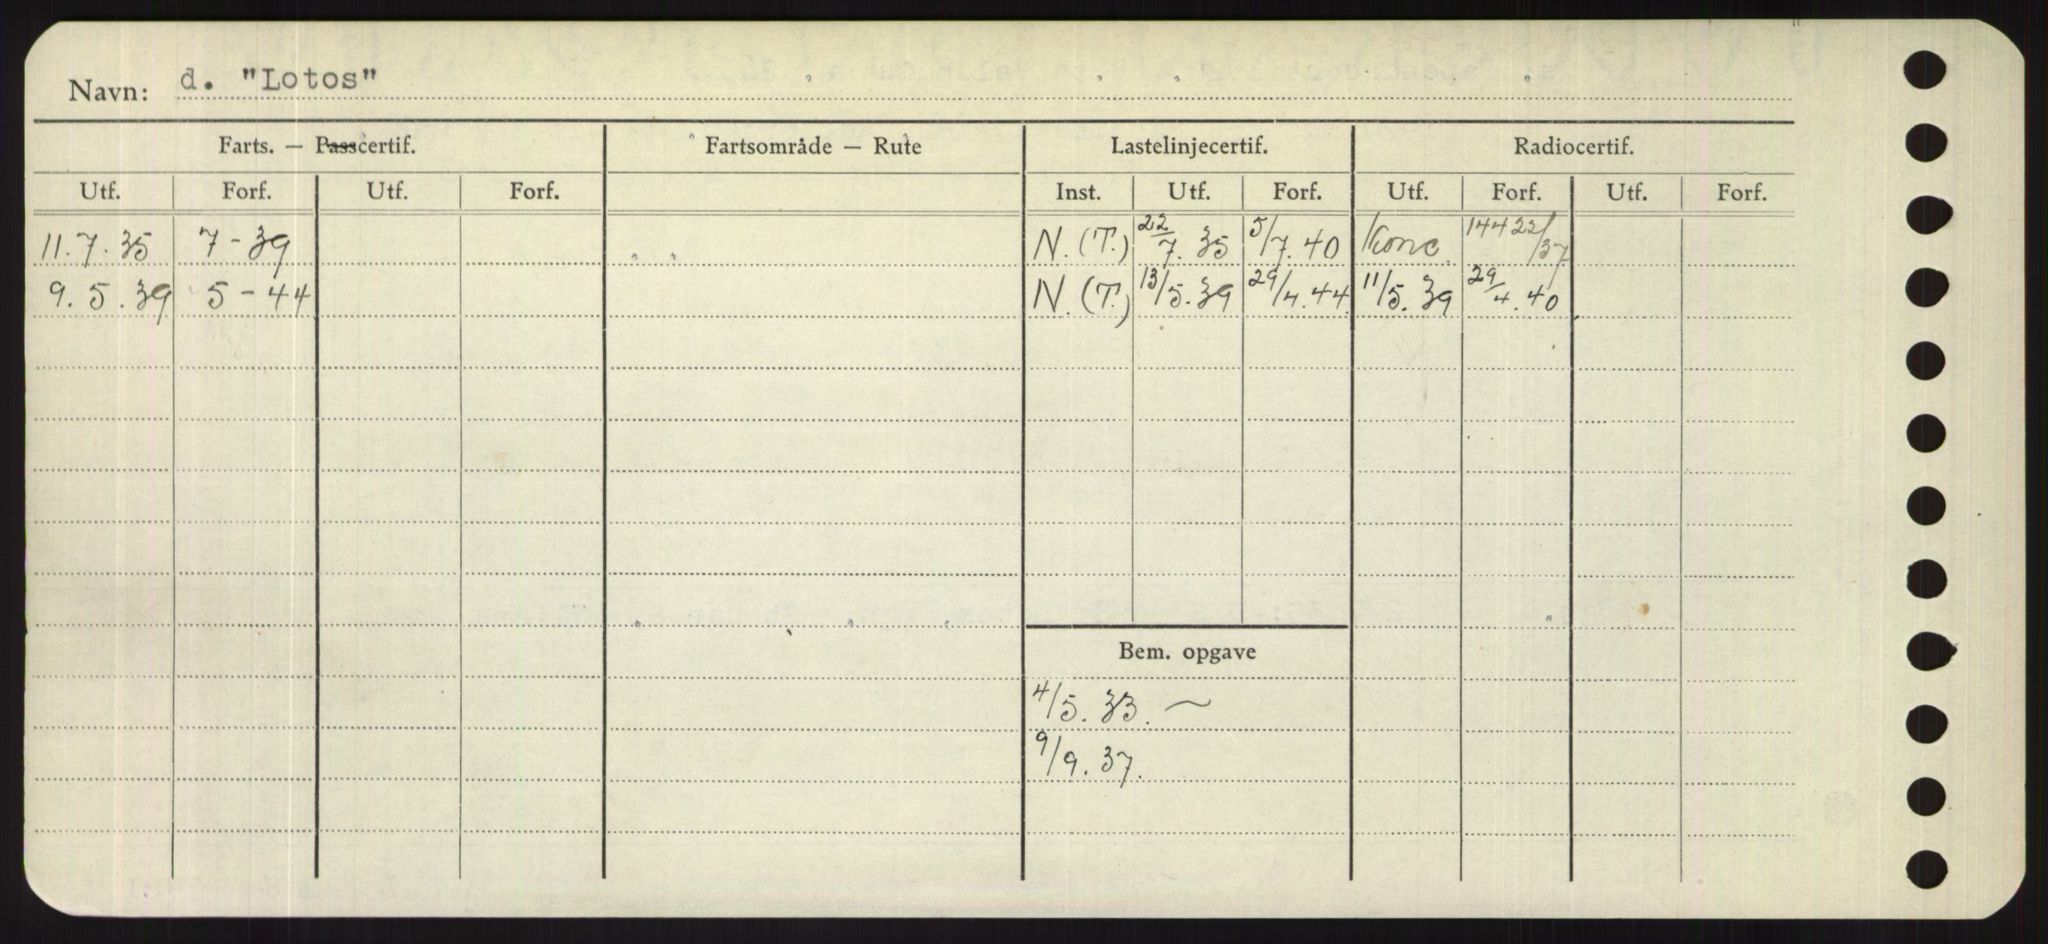 Navn: d. "Lotos"
Farts. — Passcertif. Fartsområde — Rute Lastelinjecertif. Radiocertif.
Utf. Forf. Utf. Forf. Inst. Utf. Forf. Utf. Forf. Utf. Forf.
11.7.35 7-39 " " N.(T.) 22/7.35 5/7.40 Konc. 14422/37
9.5.39 5-44 N.(T.) 13/5.39 29/4.44 11/5.39 29/4.40
Bem. opgave
4/5.33. ~
9/9.37.